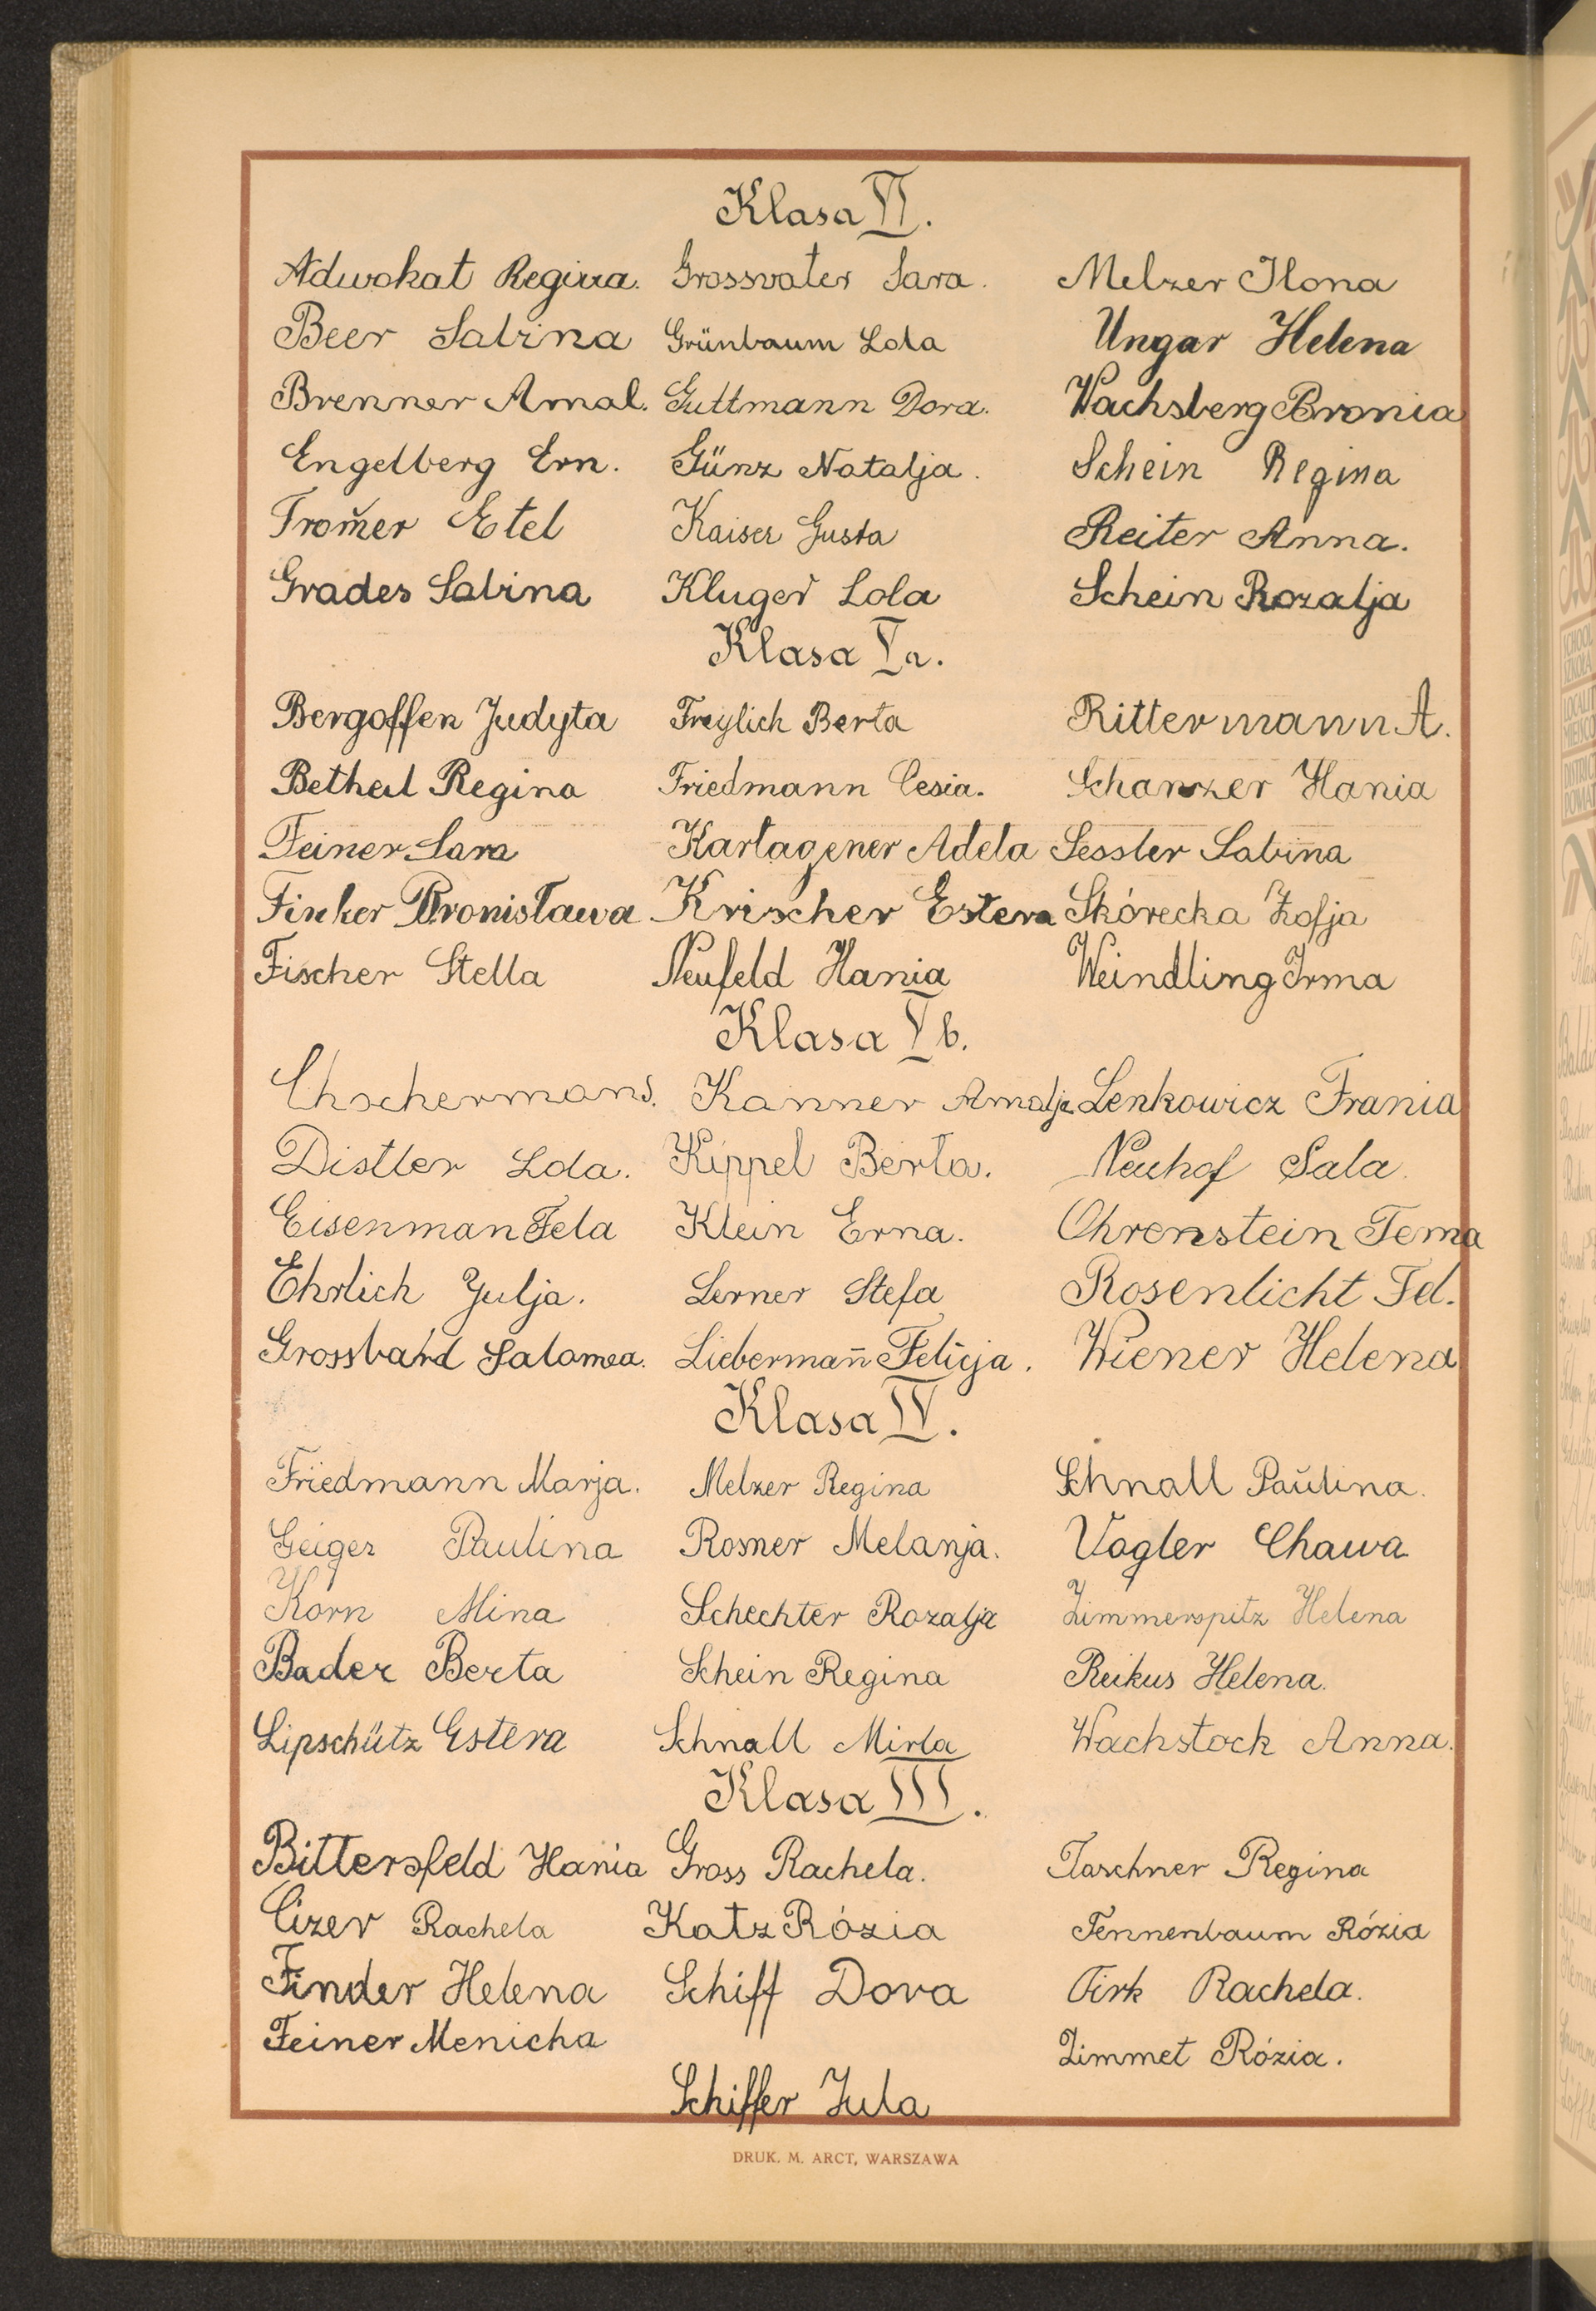 Klasa VI.
Adwokat Regina. Grossvater Sara. Melzer Ilona
Beer Sabina Grünbaum Lola Ungar Helena
Brenner Amal. Guttmann Dora. Wachsberg Bronia
Engelberg Ern. Günz Natalja. Schein Regina
Krom̄er Etel Kaiser Gusta Reiter Anna.
Grades Sabina Kluger Lola Schein Rozalja
Klasa Va.
Bergoffen Judyta Freylich Berta Rittermann A.
Betheil Regina Friedmann Cesia. Schanzer Hania
Feiner Sara Kartagener Adela Sessler Sabina
Finker Bronisława Krischer Estera Skórecka Zofja
Fischer Stella Neufeld Hania Weindling Irma
Klasa Vb.
Kanner Amalja Lenkowicz Frania
Distler Lola. Kippel Berta. Neuhof Sala.
Eisenman Fela Klein Erna. Ohrenstein Tema
Ehrlich Julja. Lerner Stefa Rosenlicht Fel.
Grossbard Salomea. Lieberman̄ Felicja. Wiener Helena
Klasa IV.
Friedmann Marja. Melzer Regina Schnall Paulina.
Geiger Paulina Rosner Melanja. Vogler Chawa
Korn Mina Schechter Rozalja Zimmerspitz Helena
Bader Berta Schein Regina Reikus Helena.
Lipschütz Estera Schnall Mirla Wachstock Anna.
Klasa III.
Bittersfeld Hania Gross Rachela. Taschner Regina
Cizer Rachela Katz Rózia Tennenbaum Rózia
Finder Helena Schiff Dora Tirk Rachela.
Feiner Menicha Zimmet Rózia.
Schiffer Jula
DRUK. M. ARCT, WARSZAWA